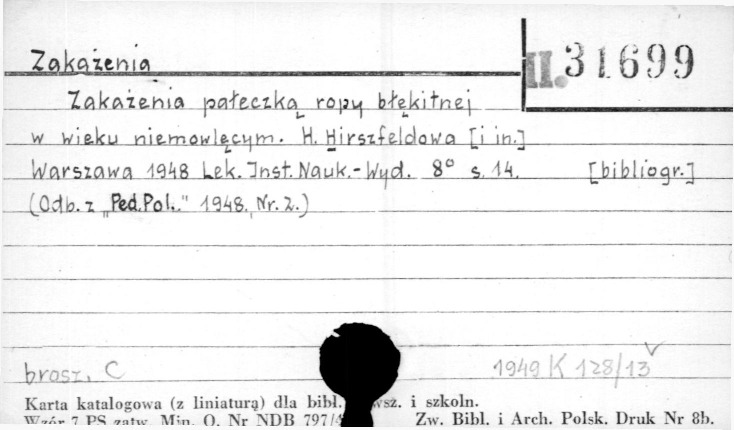 Zakażenia
II. 31699
Zakażenia pałeczką ropy błękitnej
w wieku niemowlęcym. H. Hirszfeldowa [i in.]
Warszawa 1948 Lek. Inst. Nauk.-Wyd. 8° s. 14. [bibliogr.]
(Odb. z "Ped. Pol." 1948, Nr. 2.)
brosz. C 1949 K 128/13
Karta katalogowa (z liniaturą) dla bibl. wsz. i szkoln.
Wzór 7 PS zatw. Min. O. Nr NDB 797/4 Zw. Bibl. i Arch. Polsk. Druk Nr 8b.